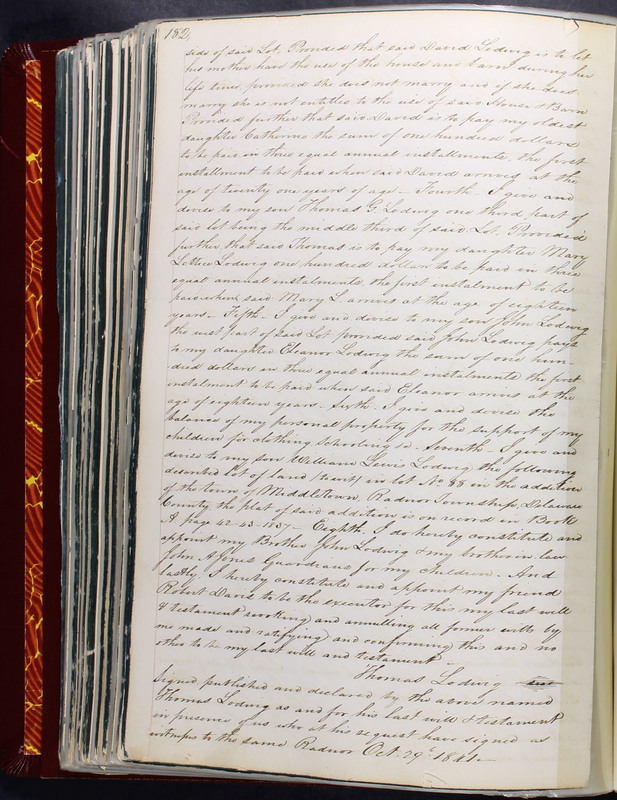 182
side of said Lot, Provided that said David Lodwig is to let
his mother have the use of the house and barn during her
life time provided she does not marry and if she does
marry she is not entitled to the use of said House & Barn
Provided further that said David is to pay my oldest
daughter Catherine the sum of one hundred dollars
to be paid in three equal annual installments, the first
installment to be paid when said David arrives at the
age of twenty one years of age – Fourth – I give and
devise to my son Thomas G. Lodwig one third part of
said lot being the middle third of said Lot. Provided
further that said Thomas is to pay my daughter Mary
Lettice Lodwig one hundred dollars to be paid in three
equal annual instalments, the first instalment to be
paid when said Mary L arrives at the age of eighteen
years – Fifth – I give and devise to my son John Lodwig
the west part of said Lot provided said John Lodwig pays
to my daughter Eleanor Lodwig the sum of one hun-
dred dollars in three equal annual instalments the first
instalment to be paid when said Eleanor arrives at the
age of eighteen years. Sixth. I give and devise the
balance of my personal property for the support of my
children for clothing schooling &c – Seventh – I give and
devise to my son William Lewis Lodwig the following
described lot of land in lot No 88 in the addition
of the town of Middletown, Radnor Township, Delaware
County the plat of said addition is on record in Book
A page 42-43-1837 – Eighth. I do hereby constitute and
appoint my Brother John Lodwig & my brother in law
John A Jones Guardians for my children – And
lastly, I hereby constitute and appoint my friend
Robert Davis to be the executor for this my last will
& testament revoking and annulling all former wills by
me made and ratifying and confirming this and no
other to be my last will and testament –
Thomas Lodwig
Signed published and declared by the above named
Thomas Lodwig as and for his last will & testament
in presence of us who at his request have signed as
witness to the same Radnor Oct. 29th 1841 –